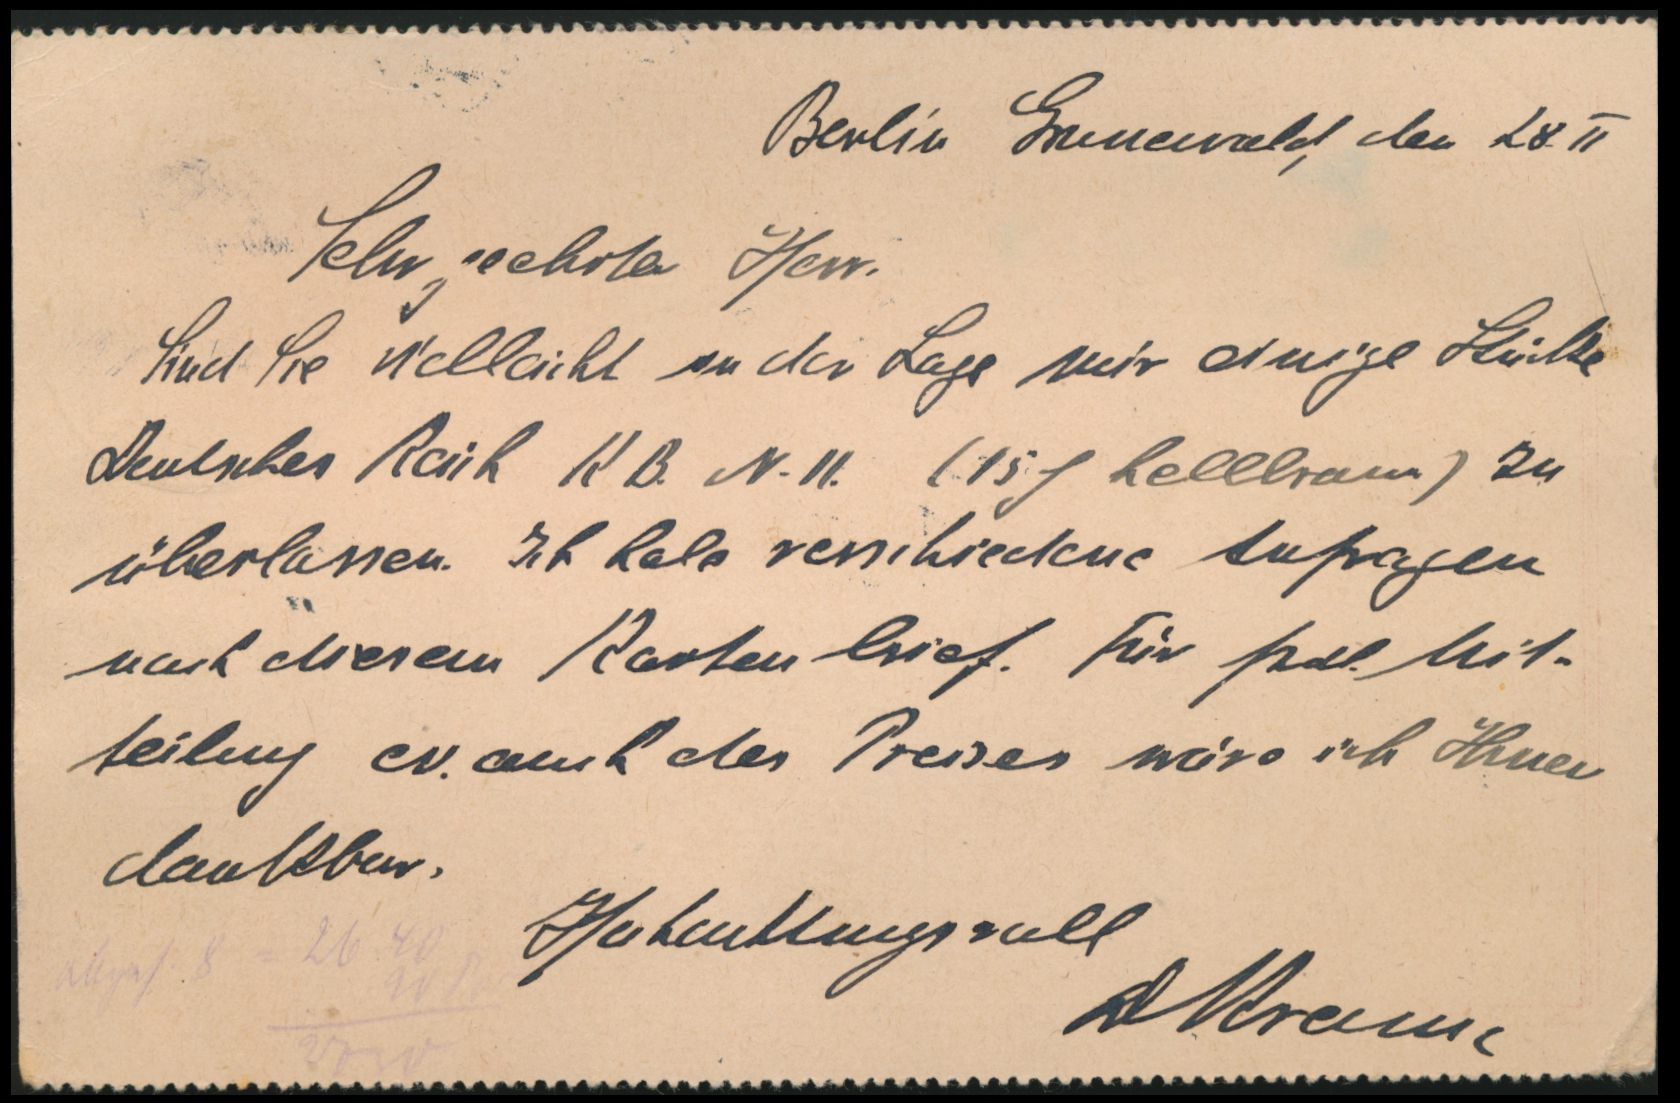 Berlin Grunewald, den 28. II
Sehr geehrter Herr.
Sind Sie vielleicht in der Lage mir einige Stücke
Deutsches Reich K B. N. 11. (15 hellbraun) zu
überlassen. Ich habe verschiedene Anfragen
nach diesem Kartenbrief. Für frdl. Mit-
teilung ev. auch des Preises wäre ich Ihnen
dankbar.
Hochachtungsvoll
8 = 26.40